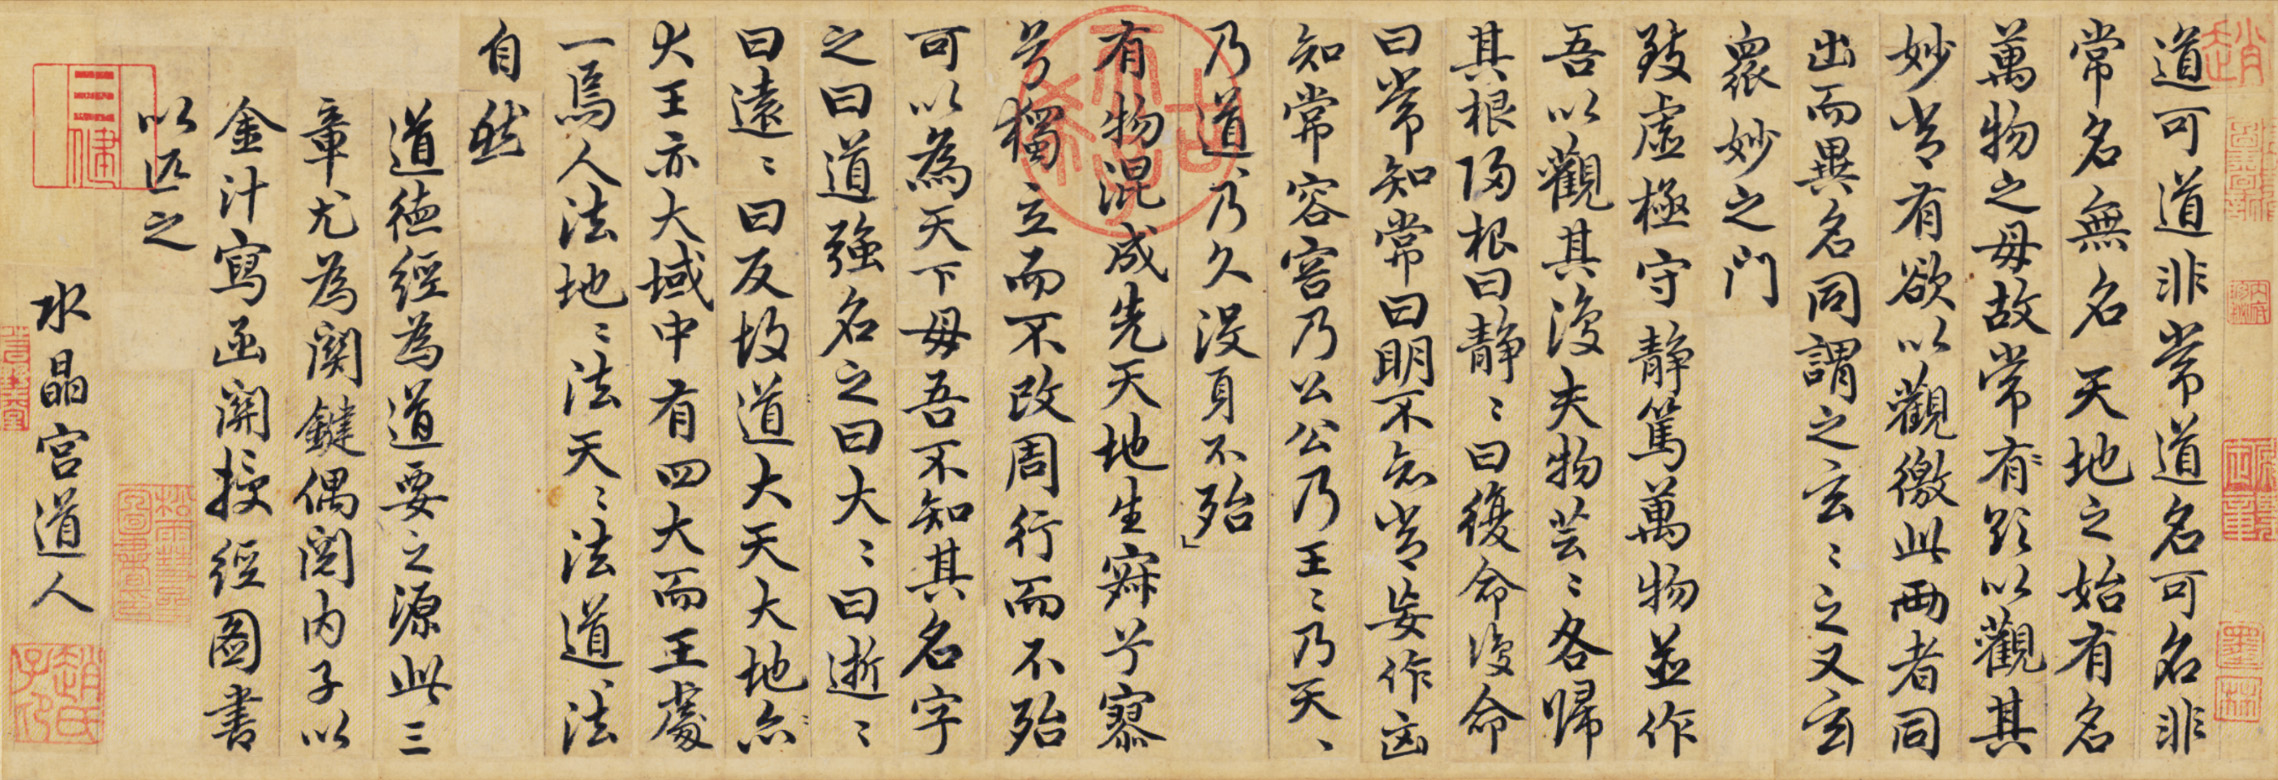 道可道非常道名可名非
常名無名天地之始有名
萬物之母故常有欲以觀其
妙常有欲以觀徼此兩者同
出而異名同謂之玄〻之又玄
衆妙之門
致虛極守靜篤萬物並作
吾以觀其復夫物芸〻各歸
其根歸根曰静〻曰復命復命
曰常知常曰明不知常妄作凶
知常容容乃公公乃王〻乃天〻
乃道〻乃久沒身不殆
有物混成先天地生寂兮寥
兮獨立而不改周行而不殆
可以為天下母吾不知其名字
之曰道強名之曰大〻曰逝〻
曰遠〻曰反故道大天大地亦
大王亦大域中有四大而王處
一焉人法地〻法天〻法道〻法
自然
道德經為道要之源此三
章尤為関鍵偶閱内子以
金汁寫函關授經圖書
以匹之
水晶宮道人